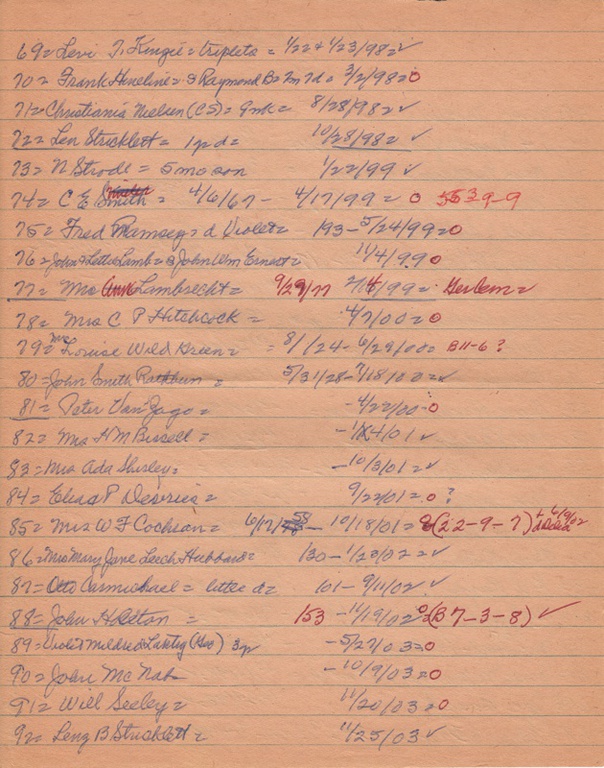 69= Levi T. Kinzie = triplets = 1/22 + 1/23/98 = ✓
70= Frank Heneline = & Raymond B = 7m 7d = 3/2/98 = 0
71= Christiania Nielsen (CS) = 9mk = 8/28/98 = ✓
72= Len Stricklett = 1 pd = 10/28/98 = ✓
73= N Strode = 5 mo son 1/22/99 ✓
74= C E Smith = 4/6/67 - 4/17/99 = 0 539-9
75= Fred Ramsey = d Violet = 193 - 5/24/99 = 0
76= John & Letta Lamb = John Wm Ernest = 11/4/99 0
77= Mrs Ann Lambrecht = 9/29/77 2/14/99 =
78= Mrs C P Hitchcock = 4/7/00 = 0
79= Mrs Louise Wild Grien = = 8/1/24 - 6/29/00 0 B11-6 ?
80= John Smith Rathbun = 5/31/28 - 7/18/00 = ✓
81= Peter Van Jago = - 4/22/00 - 0
82= Mrs H M Bissell = - 4/01 ✓
83= Mrs Ada Shirley = - 10/3/01 = ✓
84= P = 9/22/01 = 0 ?
85= Mrs W F Cochran = 6/17/58 - 10/18/01 = (22-9-7)
86= Mrs Mary Jane Leech Hubbard = 130 - 1/23/02 = ✓
87= Otto Carmichael = little d = 101 - 9/11/02 ✓
88= John H Elton = 153 - 11/19/02 = (B 7-3-8) ✓
89= Violet Mildred (Geo) 3p - 5/27/03 = 0
90= John Mc Nab - 10/9/03 = 0
91= Will Seeley = 11/20/03 = 0
92= Lenz B Stricklett = 11/25/03 ✓